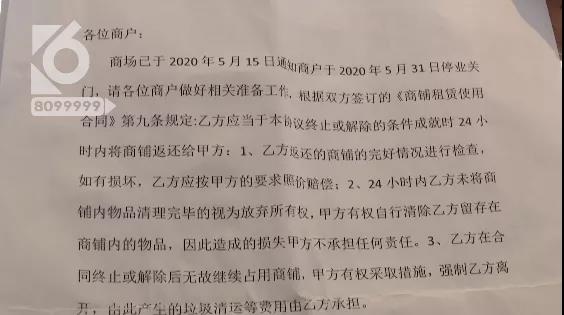 各位商户：
商场已于2020年5月15日通知商户于2020年5月31日停业关
门，请各位商户做好相关准备工作，根据双方签订的《商铺租赁使用
合同》第九条规定:乙方应当于本协议终止或解除的条件成就时24小
时内将商铺返还给甲方：1、乙方返还的商铺的完好情况进行检查，
如有损坏，乙方应按甲方的要求照价赔偿；2、24小时内乙方未将商
铺内物品清理完毕的视为放弃所有权，甲方有权自行清除乙方留存在
商铺内的物品，因此造成的损失甲方不承担任何责任。3、乙方在合
同终止或解除后无故继续占用商铺，甲方有权采取措施，强制乙方离
开，由此产生的垃圾清运等费用由乙方承担。
6
8099999